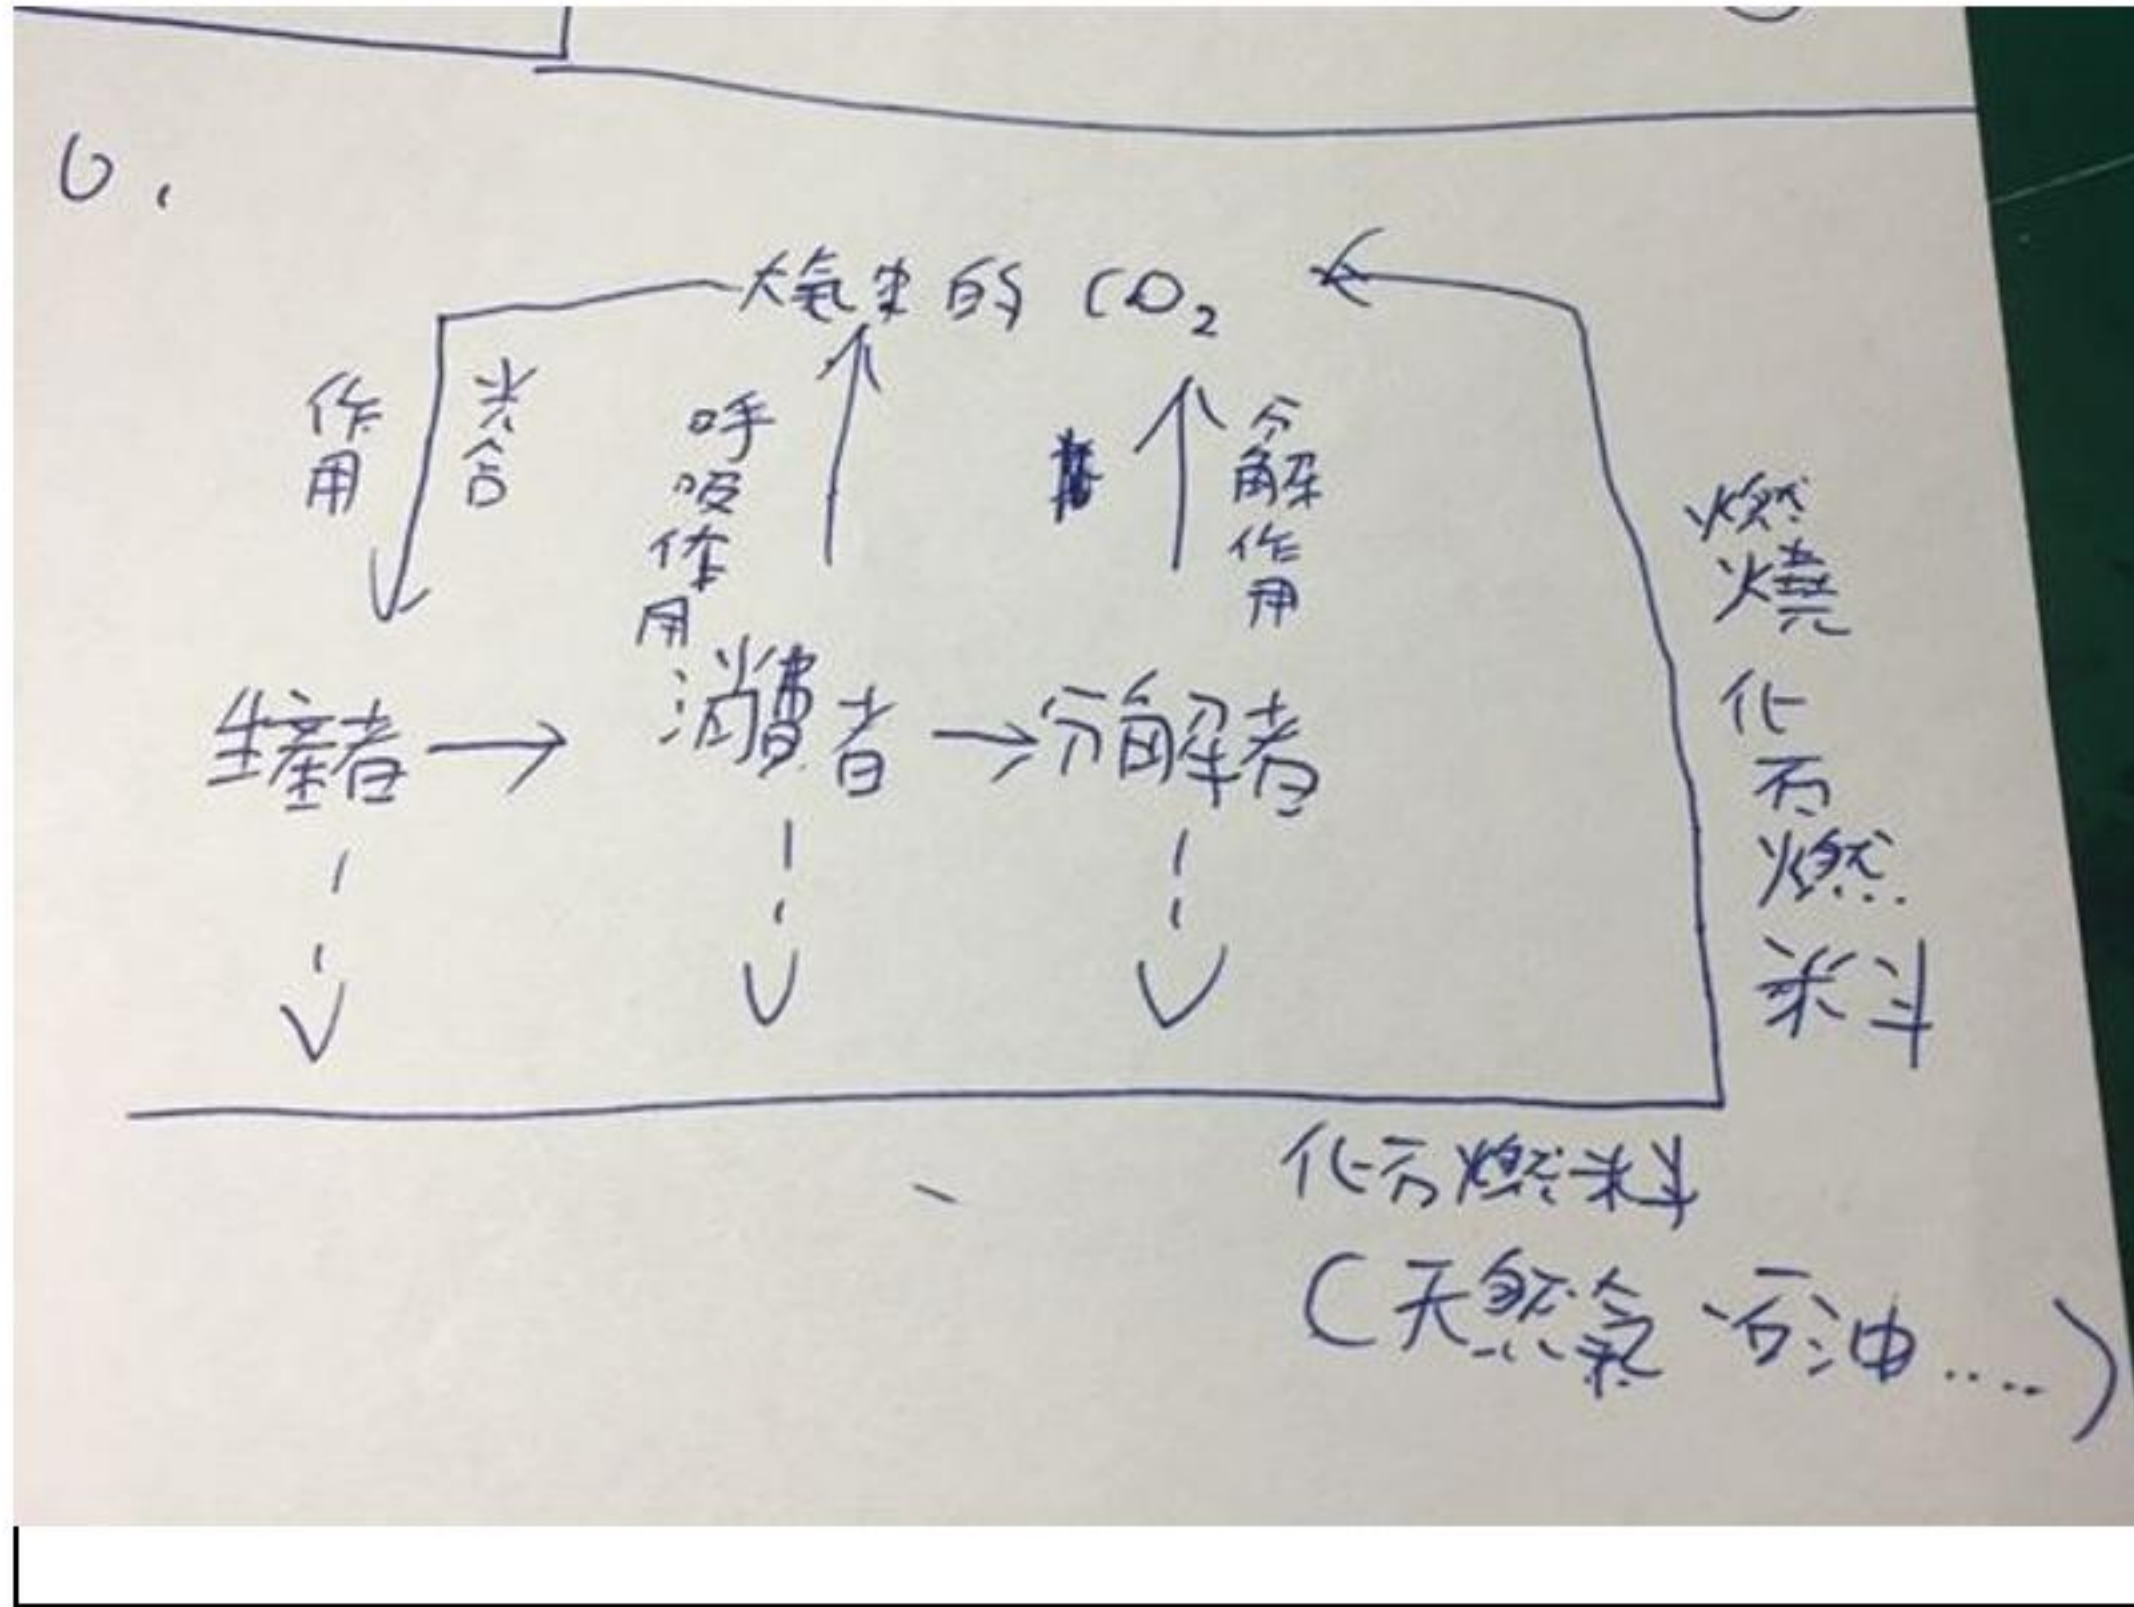 6.
大氣中的 CO₂
光合
作用
呼吸作用
分解作用
燃燒化石燃料
生產者 → 消費者 → 分解者
化石燃料
(天然氣、石油.....)